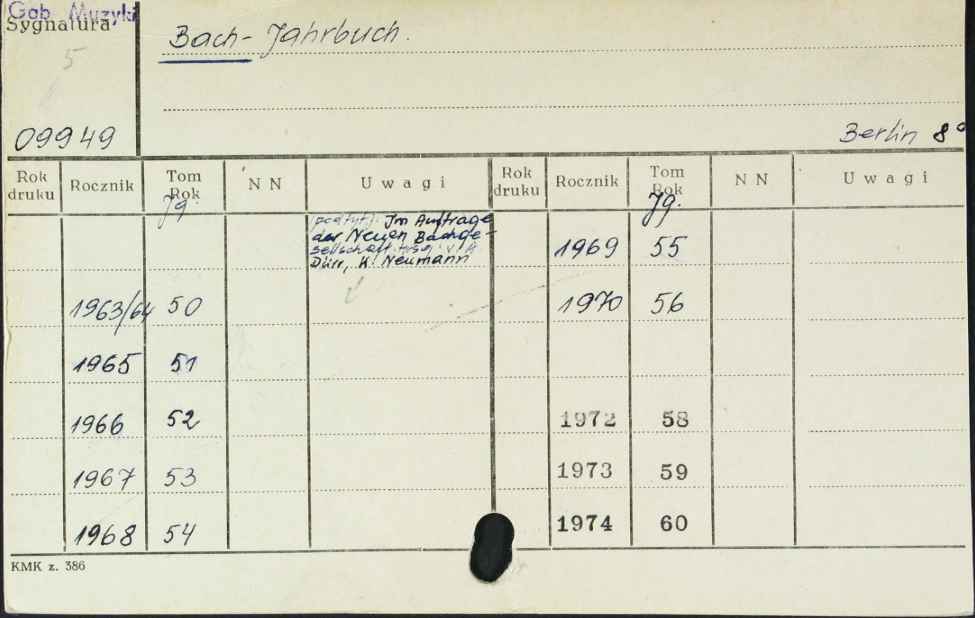 Gab. Muzyki
Sygnatura
5
Bach-Jahrbuch.
09949
Berlin 8°
Rok druku Rocznik Tom Rok N N Uwagi Rok druku Rocznik Tom Rok N N Uwagi
Jg. Jg.
Im Auftrage
der Neuen Bachge-
sellschaft hrsg. v. A.
Dürr, W. Neumann
1969 55
1963/64 50 1970 56
1965 51
1966 52 1972 58
1967 53 1973 59
1968 54 1974 60
KMK z. 386